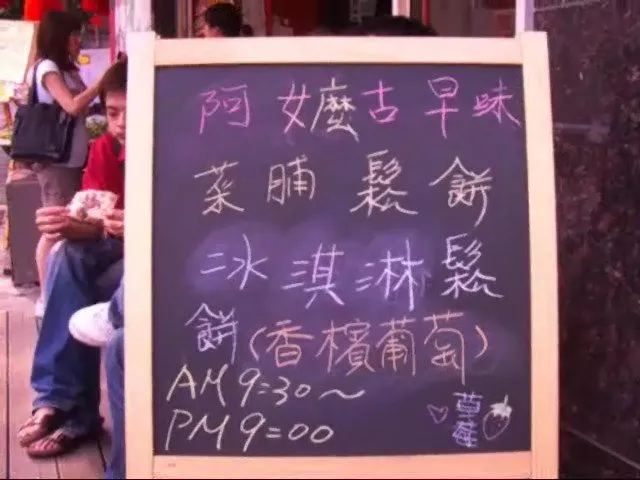 阿嬤古早味
菜脯鬆餅
冰淇淋鬆
餅(香檳葡萄)
AM 9:30～
PM 9:00
草莓